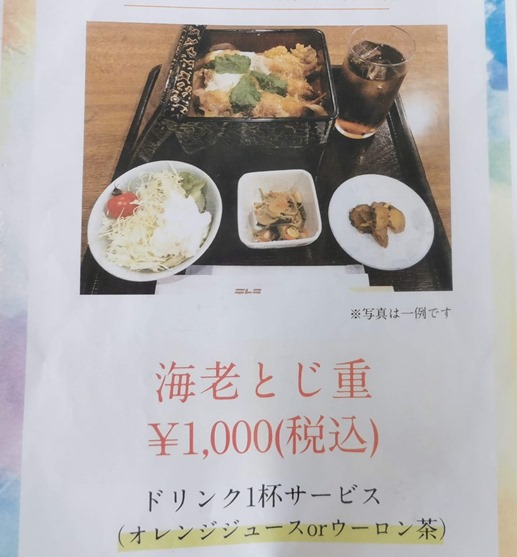 ※写真は一例です
海老とじ重
¥1,000(税込)
ドリンク1杯サービス
(オレンジジュースorウーロン茶)